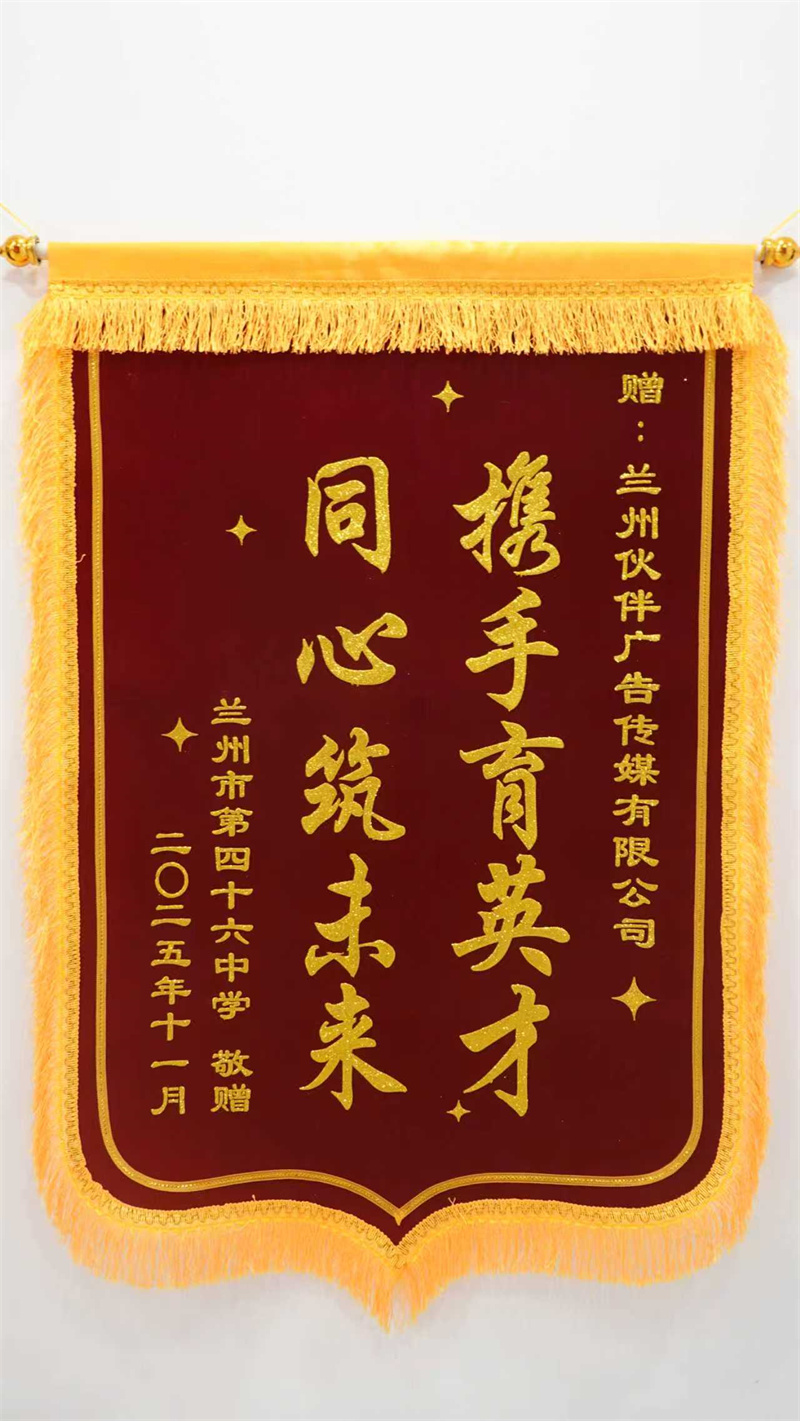 赠：兰州伙伴广告传媒有限公司
携手育英才
同心筑未来
兰州市第四十六中学 敬赠
二〇二五年十一月